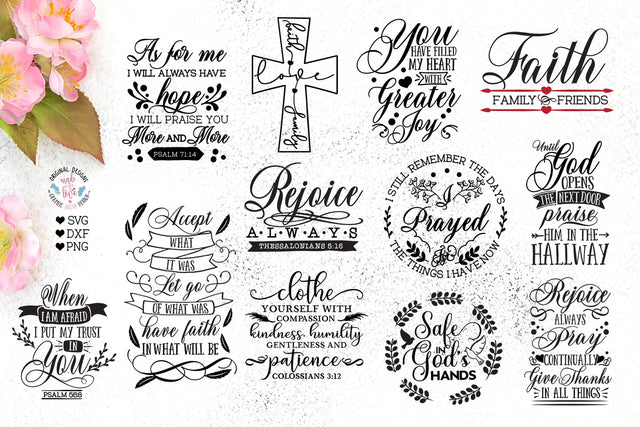 As for me
I WILL ALWAYS HAVE
hope
I WILL PRAISE YOU
More AND More
PSALM 71:14
faith
love
family
You
HAVE FILLED
MY HEART
WITH
Greater
Joy
Faith
FAMILY & FRIENDS
ORIGINAL DESIGNS
made with love
SVG
DXF
PNG
Accept
WHAT
IT WAS
Let go
OF WHAT WAS
have faith
IN WHAT WILL BE
Rejoice
ALWAYS
THESSALONIANS 5:16
I STILL REMEMBER THE DAYS
I
Prayed
FOR
THE THINGS I HAVE NOW
Until
God
OPENS
THE NEXT DOOR
praise
HIM IN THE
HALLWAY
When
I AM AFRAID
I PUT MY TRUST
IN
You
PSALM 56:8
clothe
YOURSELF WITH
COMPASSION
kindness, humility
GENTLENESS AND
patience
COLOSSIANS 3:12
Safe
IN
God's
HANDS
Rejoice
ALWAYS
Pray
CONTINUALLY
Give Thanks
IN ALL THINGS